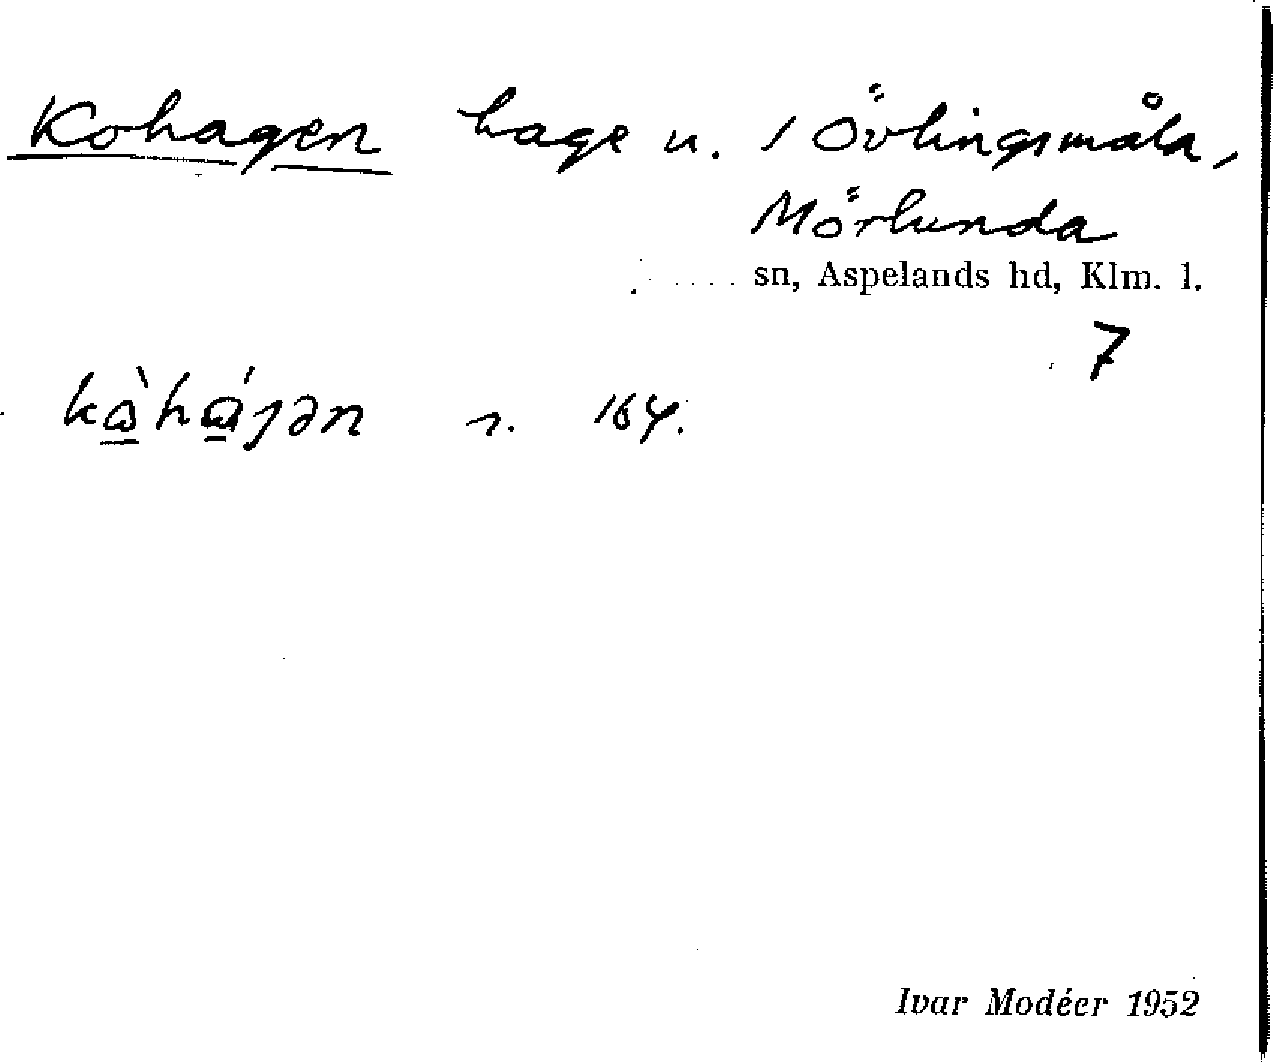 Kohagen hage u. / Övlingsmåla,
Mörlunda
sn, Aspelands hd, Klm. l.
7
164.
Ivar Modéer 1952